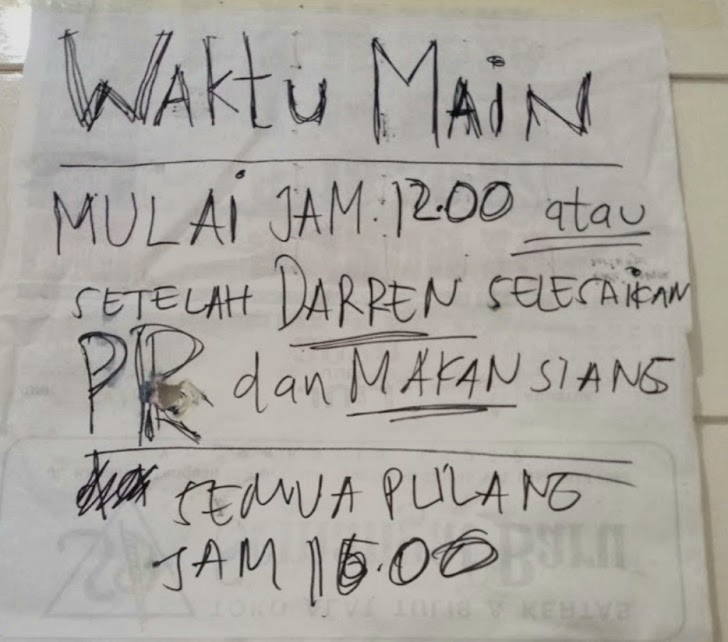 WAKTU MAiN
MULAi JAM. 12.00 atau
SETELAH DARREN SELESAiKAN
PR dan MAKAN SIANG
SEMUA PULANG
JAM 16.00
TOKO ALAT TULIS & KERTAS